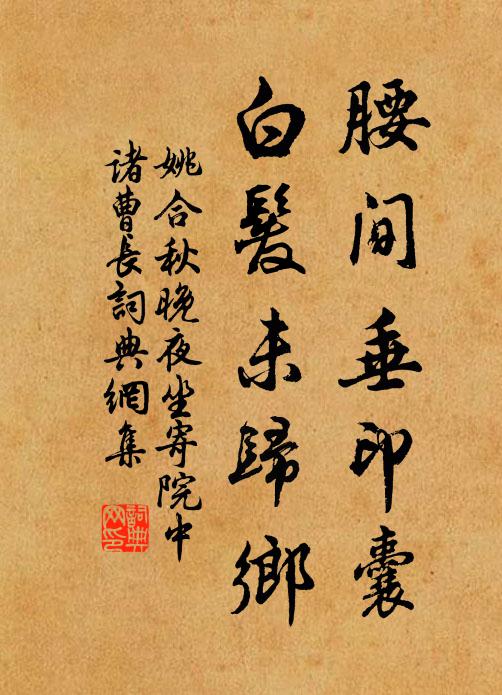 腰間垂印囊
白髮未歸鄉
姚合秋晚夜坐寄院中
諸曹長詞典網集
詞典
网印